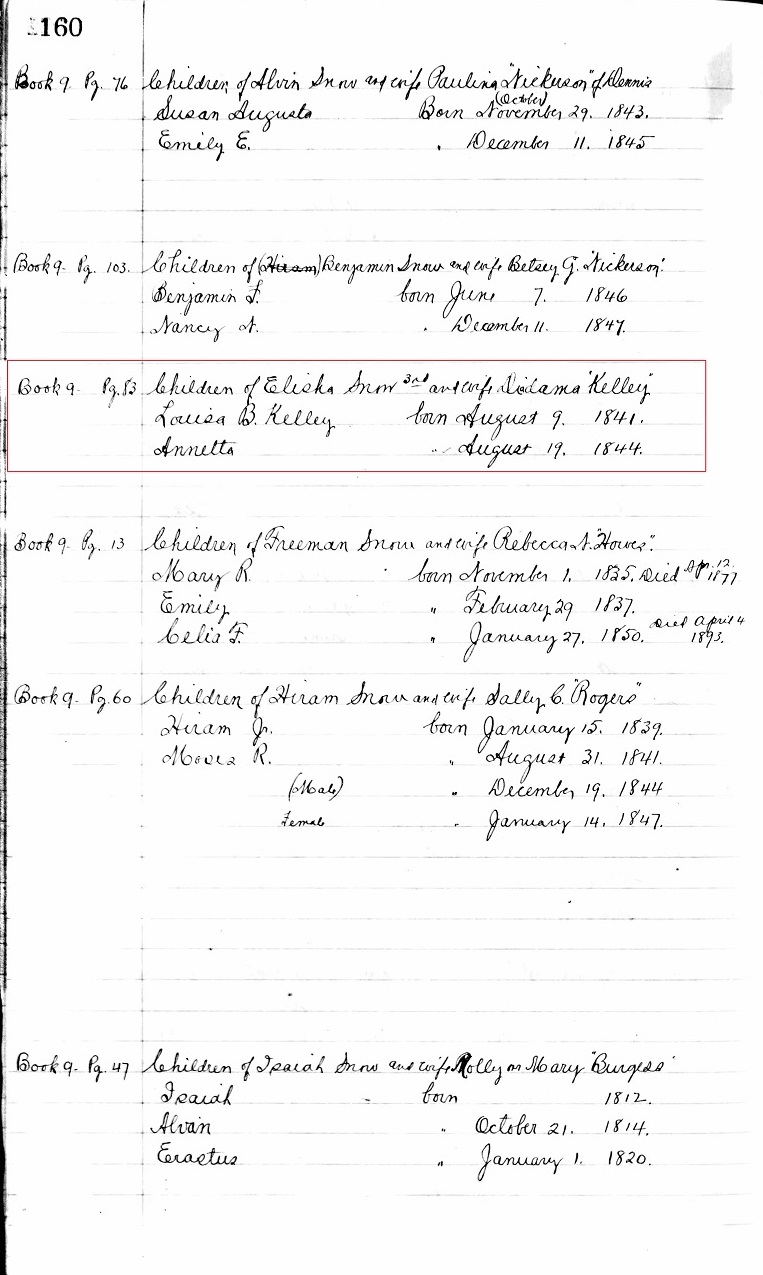 160
Book 9. Pg. 76 Children of Alvin Snow and wife Paulina "Nickerson" of Dennis
(October)
Susan Augusta Born November 29. 1843.
Emily E. " December 11. 1845
Book 9- Pg. 103. Children of (Hiram) Benjamin Snow and wife Betsey G. "Nickerson".
Benjamin F. born June 7. 1846
Nancy A. " December 11. 1847.
Book 9- Pg. 83 Children of Elisha Snow 3rd and wife Didama "Kelley"
Louisa B. Kelley born August 9. 1841.
Annetta " August 19. 1844.
Book 9- Pg. 13 Children of Freeman Snow and wife Rebecca N. "Howes".
Mary R. born November 1. 1835. Died Ap. 12. 1877
Emily " February 29 1837.
Celia F. " January 27. 1850. Died April 4 1893.
Book 9- Pg. 60 Children of Hiram Snow and wife Sally C. "Rogers"
Hiram Jr. born January 15. 1839.
R. " August 31. 1841.
(Male) " December 19. 1844
Female " January 14. 1847.
Book 9- Pg. 47 Children of Isaiah Snow and wife Polly or Mary "Burgess"
Isaiah born 1812.
Alvan " October 21. 1814.
Erastus " January 1. 1820.